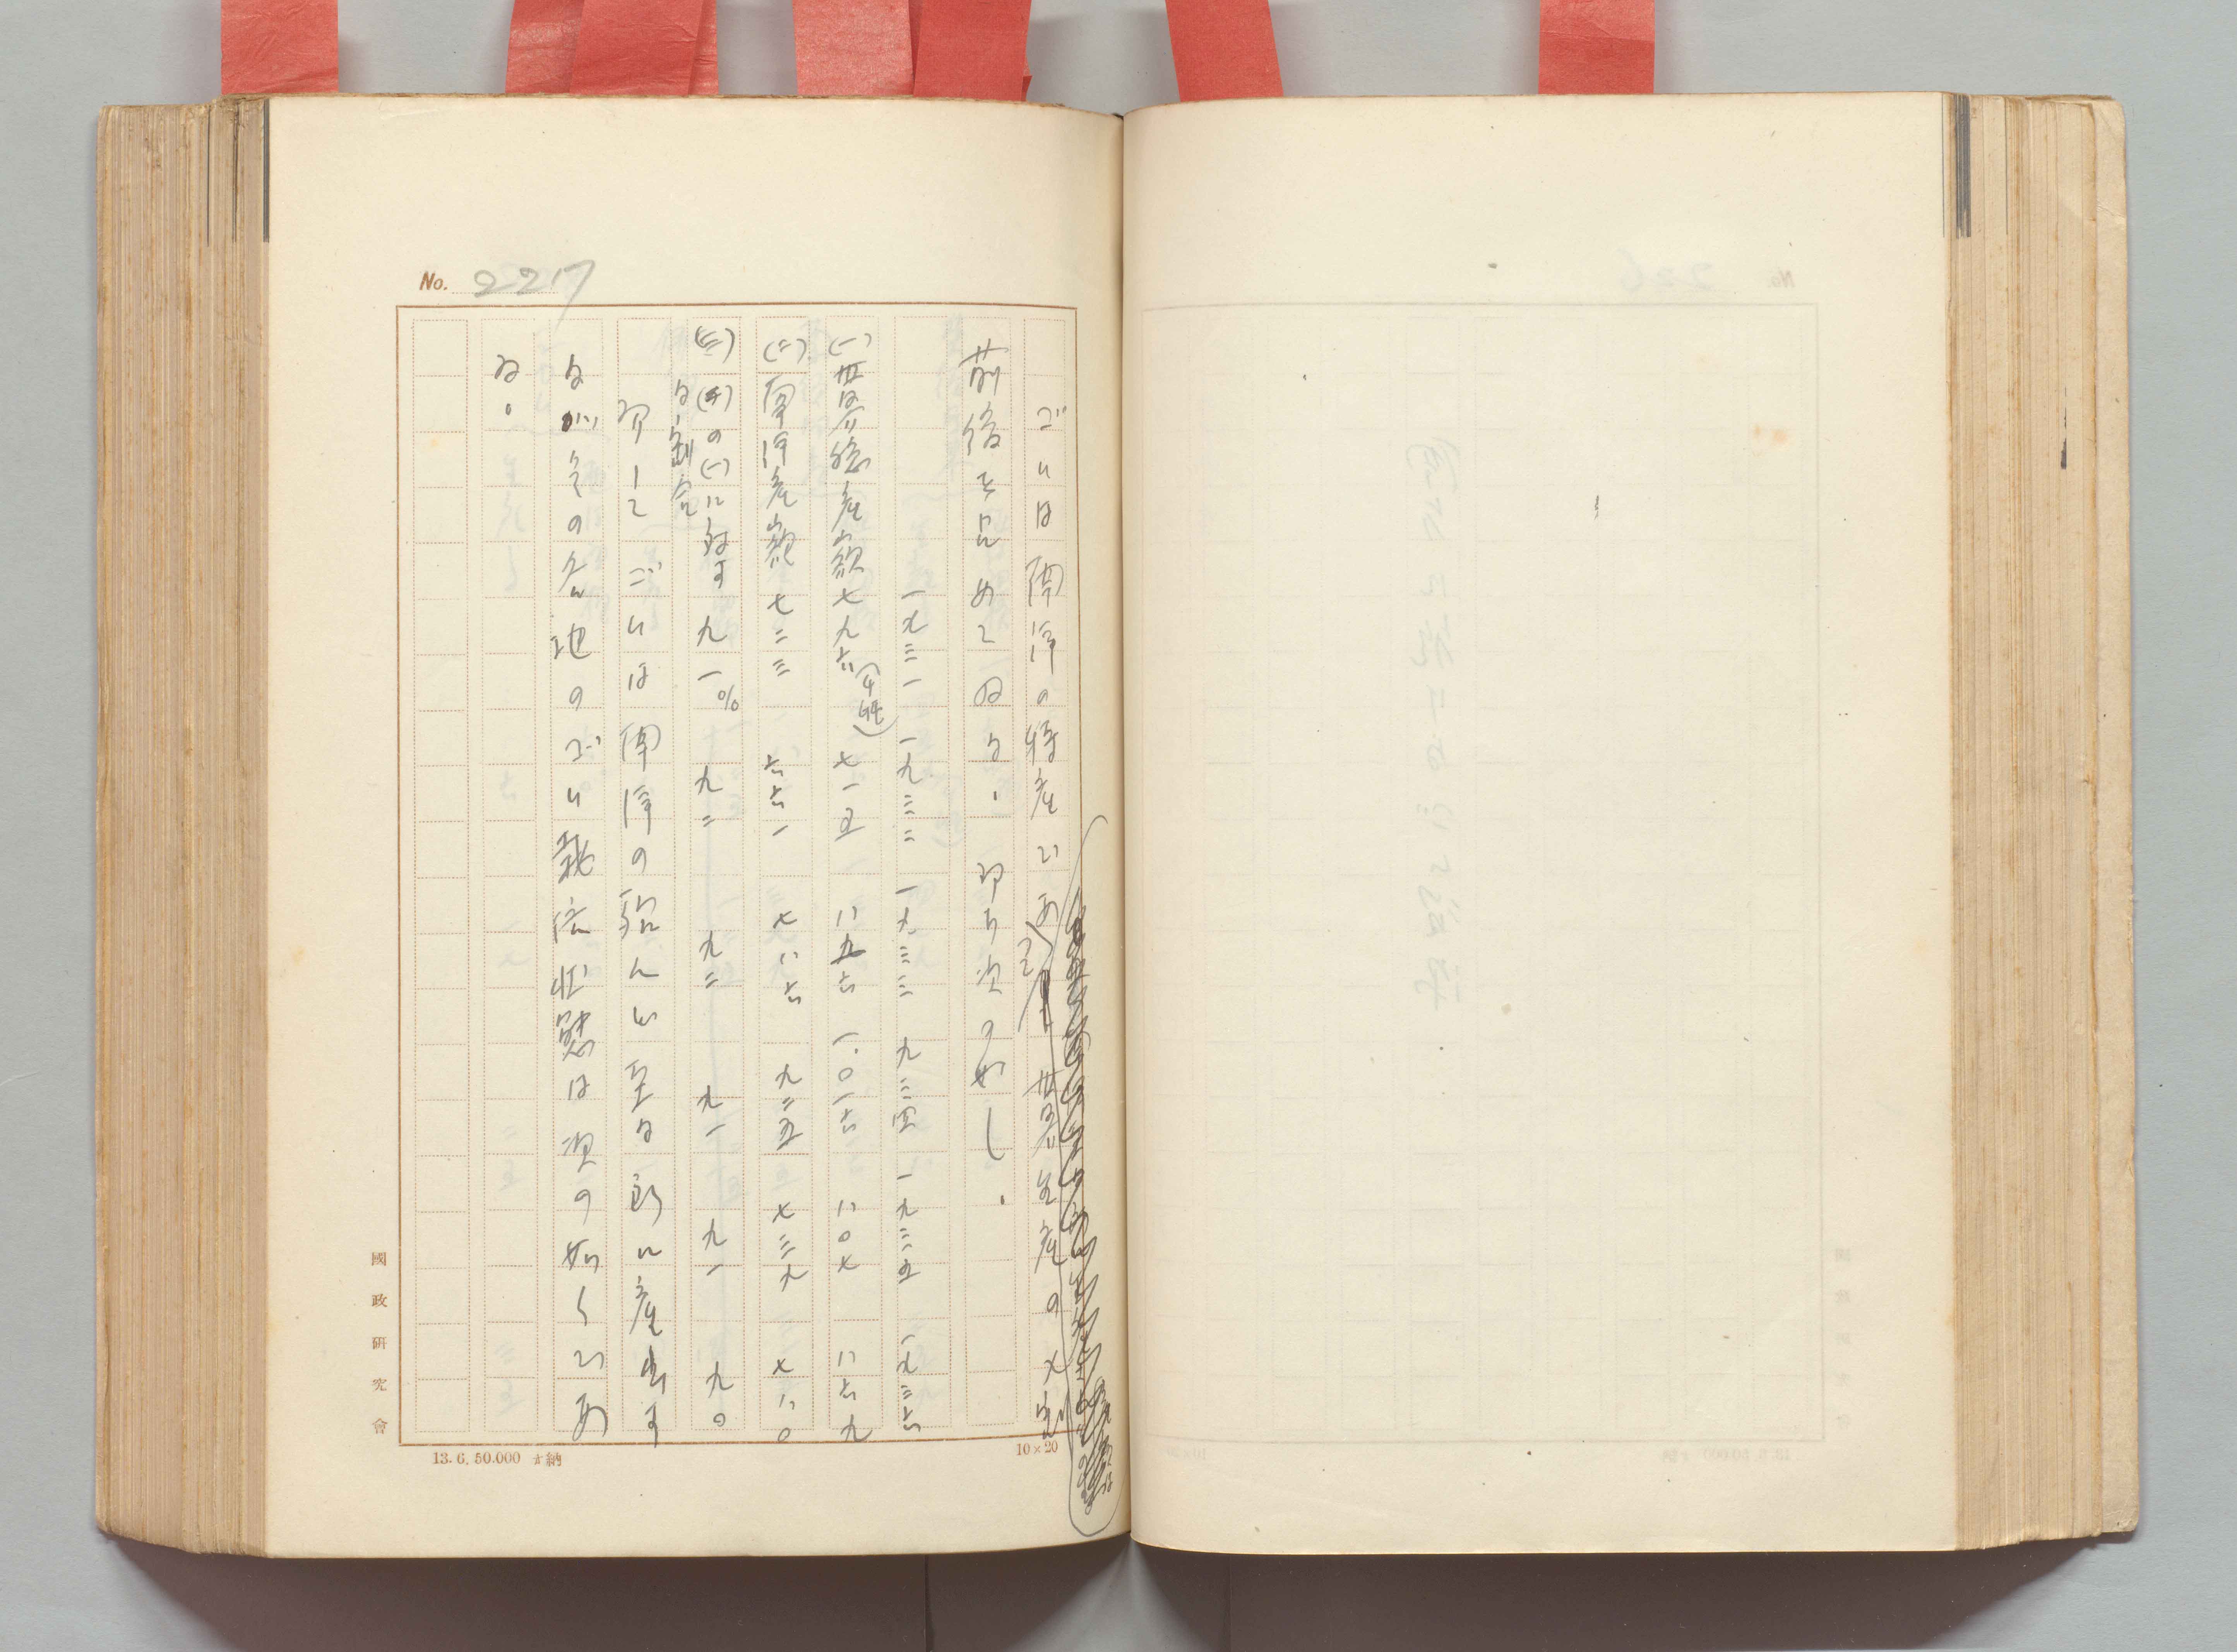 No. 227
ごムは南洋の特産であつて世界生産の大部
前後を占めてゐる、即ち次の如し、
一九三一 一九三二 一九三三 一九三四 一九三五 一九三六
(一)世界総産額 七九六(千噸) 七一五 八五六 一、〇一六 八〇七 八六九
(二)南洋産額 七二三 六六一 七八六 九二五 七三九 七八〇
(三)(二)の(一)に対する割合 九一% 九二 九二 九一 九一 九〇
而してごムは南洋の殆んど至る所に産出す
るが今の各地のごム栽培状態は次の如くであ
る。
國政研究會
13. 6. 50.000 納
10×20